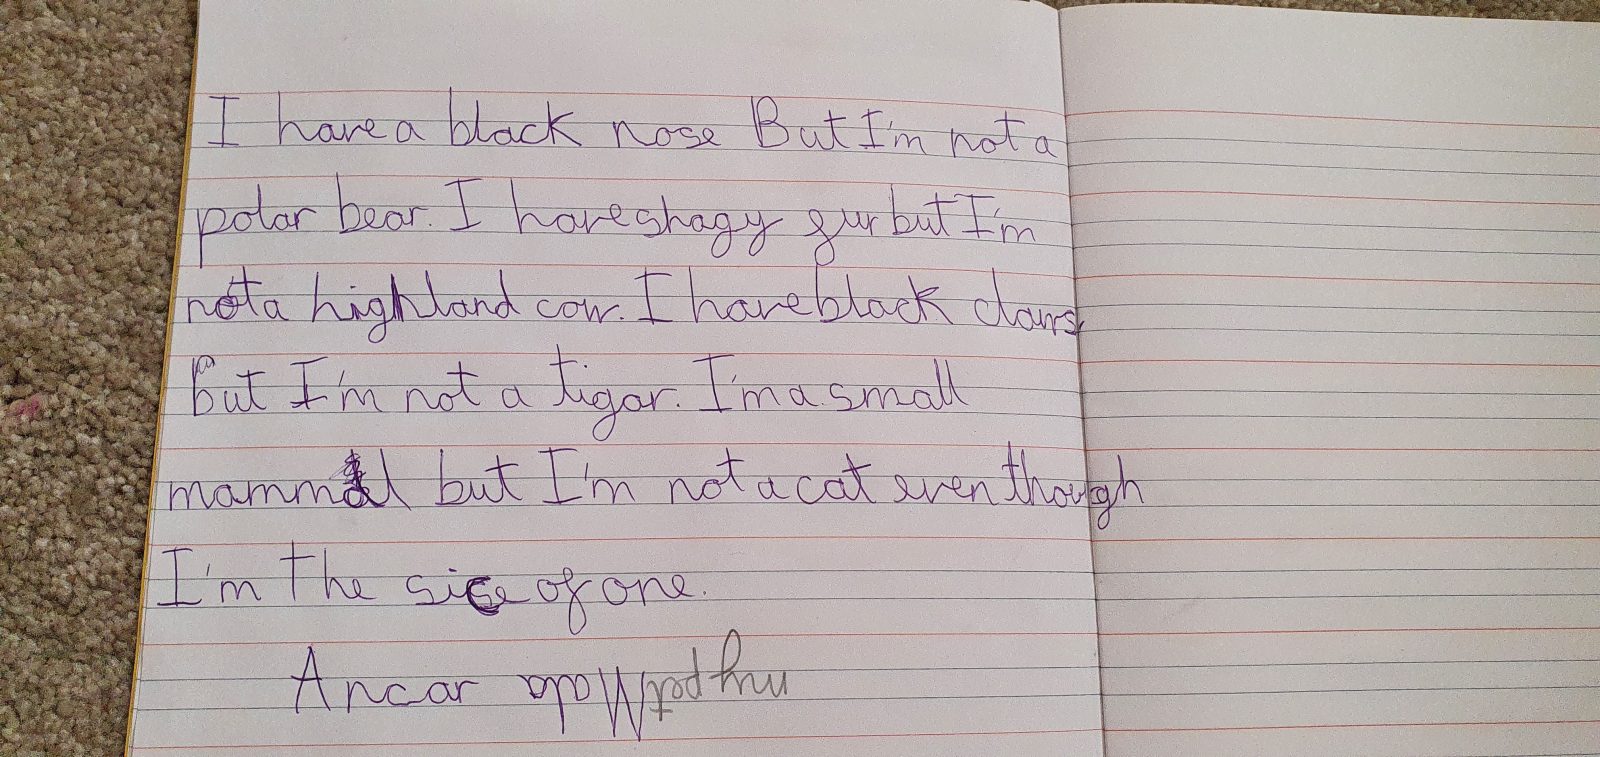 I have a black nose But I'm not a
polar bear. I have shagy fur but I'm
not a highland cow. I have black claws
But I'm not a tigar. I'm a small
mammal but I'm not a cat even though
I'm the sice of one.
Ancar my pet